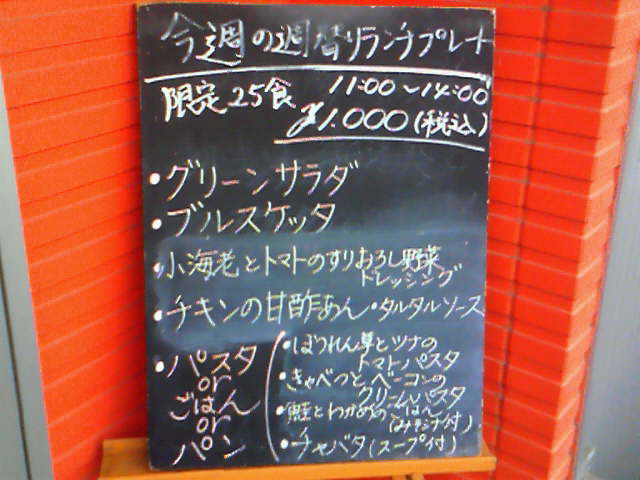 今週の週替りランチプレート
限定25食 11:00〜14:00
¥1.000(税込)
・グリーンサラダ
・ブルスケッタ
・小海老とトマトのすりおろし野菜
ドレッシング
・チキンの甘酢あん・タルタルソース
・パスタ
or
ごはん
or
パン
・ほうれん草とツナの
トマトパスタ
・きゃべつとベーコンの
クリームパスタ
・鮭とわかめのごはん
付)
・チャバタ(スープ付)